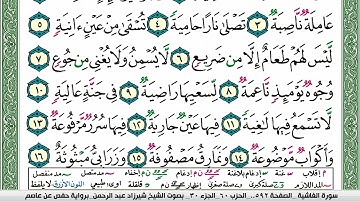 عَامِلَةٌ نَّاصِبَةٌ ٣ تَصْلَىٰ نَارًا حَامِيَةً ٤ تُسْقَىٰ مِنْ عَيْنٍ ءَانِيَةٍ ٥
لَّيْسَ لَهُمْ طَعَامٌ إِلَّا مِن ضَرِيعٍ ٦ لَّا يُسْمِنُ وَلَا يُغْنِي مِن جُوعٍ ٧
وُجُوهٌ يَوْمَئِذٍ نَّاعِمَةٌ ٨ لِّسَعْيِهَا رَاضِيَةٌ ٩ فِي جَنَّةٍ عَالِيَةٍ ١٠
لَّا تَسْمَعُ فِيهَا لَٰغِيَةً ١١ فِيهَا عَيْنٌ جَارِيَةٌ ١٢ فِيهَا سُرُرٌ مَّرْفُوعَةٌ ١٣
وَأَكْوَابٌ مَّوْضُوعَةٌ ١٤ وَنَمَارِقُ مَصْفُوفَةٌ ١٥ وَزَرَابِيُّ مَبْثُوثَةٌ ١٦
سورة الغاشية الصفحة ٥٩٢ الحزب ٦٠ الجزء ٣٠ بصوت الشيخ شيرزاد عبد الرحمن برواية حفص عن عاصم